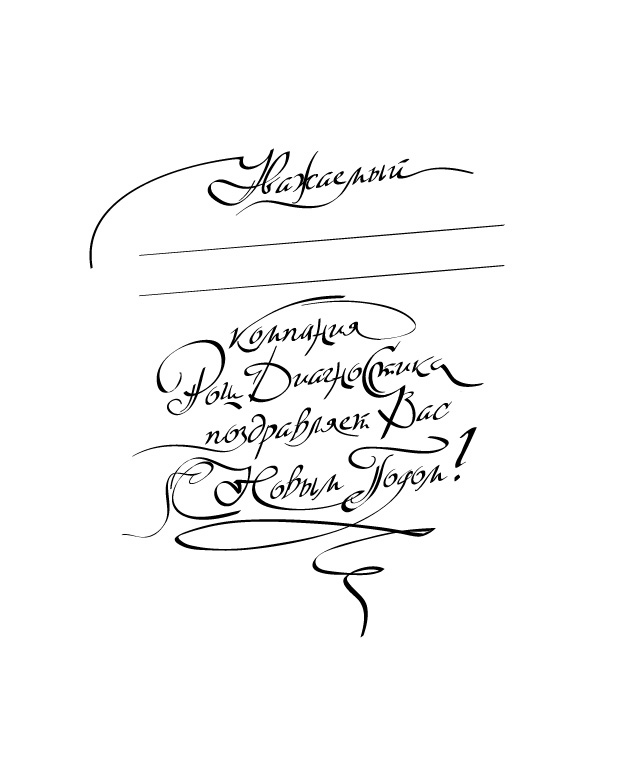 Уважаемый
компания
Рош Диагностика
поздравляет Вас
С Новым Годом!